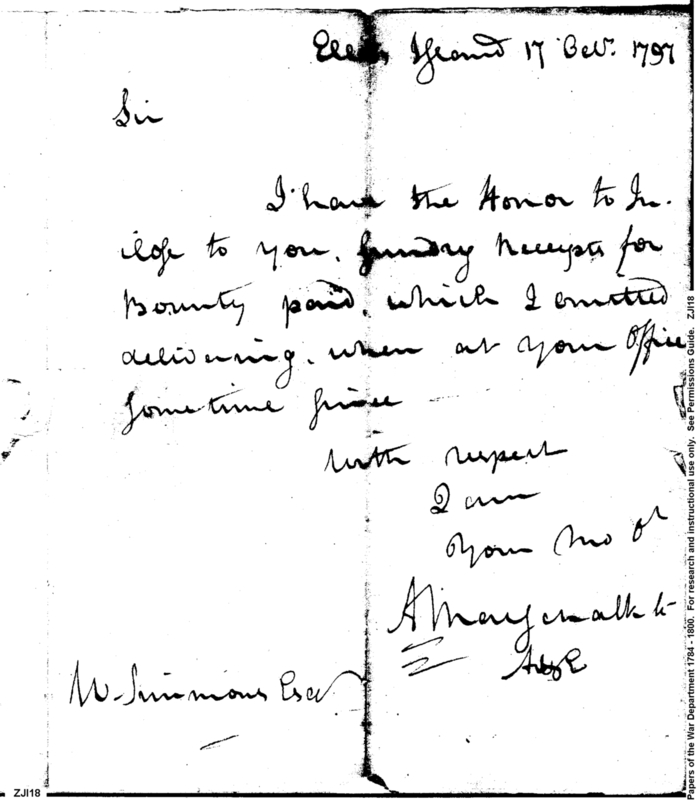 Ellis Island 17 Octr. 1797
Sir
I have the Honor to In.
close to you, sundry Receipts for
Bounty paid, which I omitted
delivering, when at your Office
sometime since
With respect
I am
Your mo ob
A
W. Simmons Esqr
ZJI18
Papers of the War Department 1784 - 1800. For research and instructional use only. See Permissions Guide. ZJI18